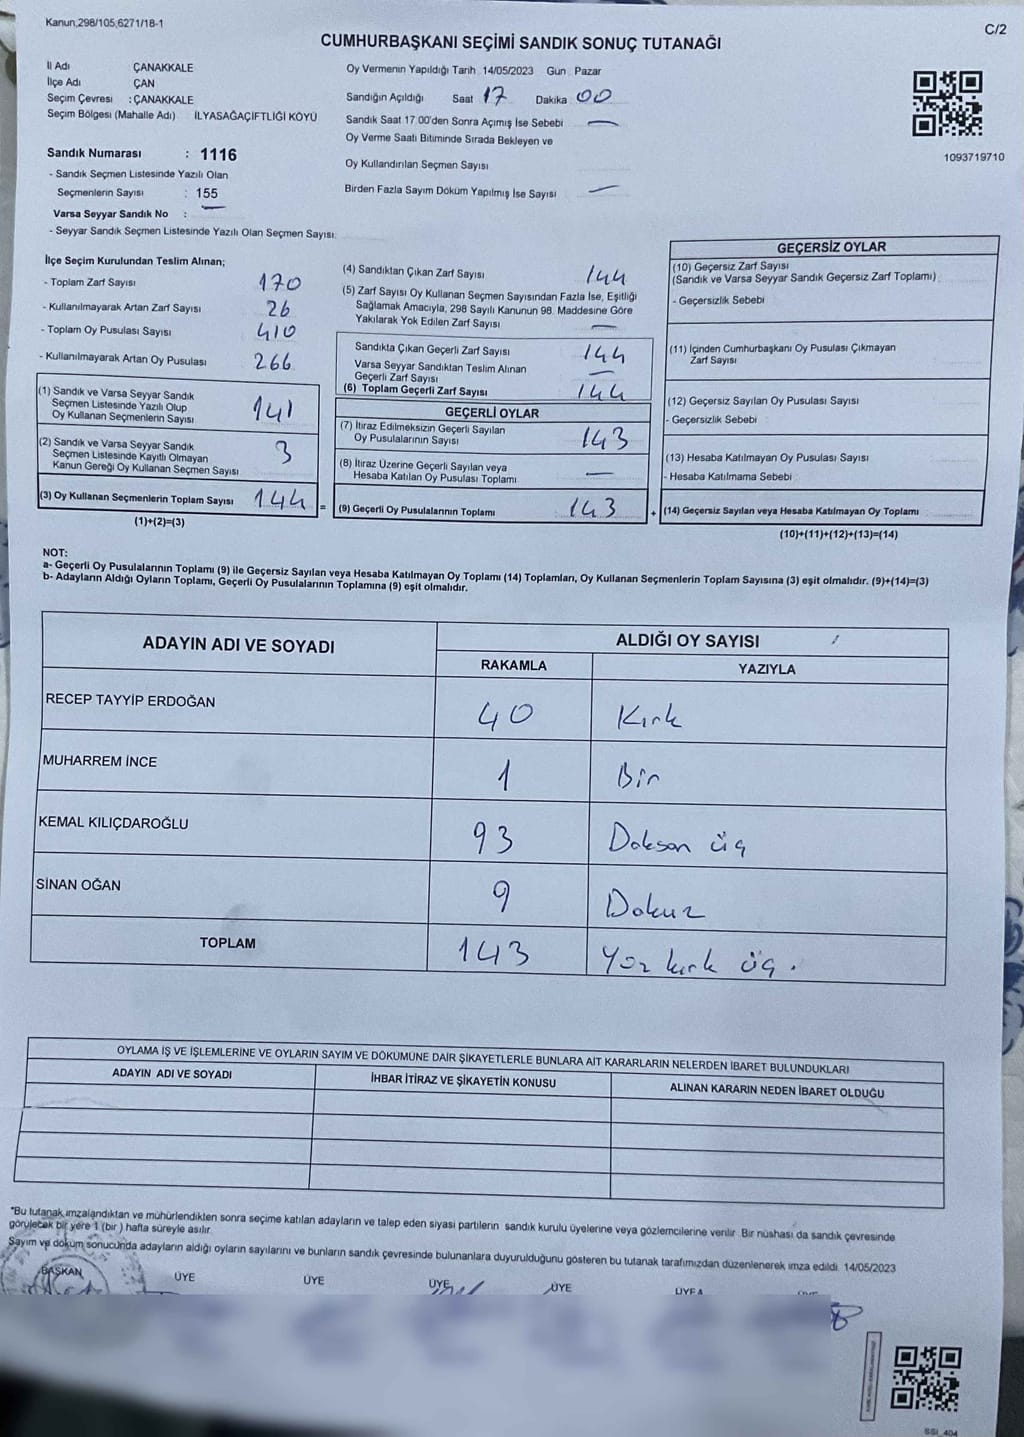 Kanun,298/105;6271/18-1
C/2
CUMHURBAŞKANI SEÇİMİ SANDIK SONUÇ TUTANAĞI
İl Adı ÇANAKKALE
İlçe Adı ÇAN
Seçim Çevresi : ÇANAKKALE
Seçim Bölgesi (Mahalle Adı) İLYASAĞAÇİFTLİĞİ KÖYÜ
Sandık Numarası : 1116
- Sandık Seçmen Listesinde Yazılı Olan
Seçmenlerin Sayısı : 155
Varsa Seyyar Sandık No :
- Seyyar Sandık Seçmen Listesinde Yazılı Olan Seçmen Sayısı:
Oy Vermenin Yapıldığı Tarih 14/05/2023 Gün : Pazar
Sandığın Açıldığı Saat 17 Dakika 00
Sandık Saat 17.00'den Sonra Açımış İse Sebebi —
Oy Verme Saati Bitiminde Sırada Bekleyen ve
Oy Kullandırılan Seçmen Sayısı
Birden Fazla Sayım Döküm Yapılmış İse Sayısı —
1093719710
İlçe Seçim Kurulundan Teslim Alınan;
- Toplam Zarf Sayısı 170
- Kullanılmayarak Artan Zarf Sayısı 26
- Toplam Oy Pusulası Sayısı 410
- Kullanılmayarak Artan Oy Pusulası 266
(1) Sandık ve Varsa Seyyar Sandık
Seçmen Listesinde Yazılı Olup
Oy Kullanan Seçmenlerin Sayısı 141
(2) Sandık ve Varsa Seyyar Sandık
Seçmen Listesinde Kayıtlı Olmayan
Kanun Gereği Oy Kullanan Seçmen Sayısı 3
(3) Oy Kullanan Seçmenlerin Toplam Sayısı 144 =
(1)+(2)=(3)
(4) Sandıktan Çıkan Zarf Sayısı 144
(5) Zarf Sayısı Oy Kullanan Seçmen Sayısından Fazla İse, Eşitliği
Sağlamak Amacıyla, 298 Sayılı Kanunun 98. Maddesine Göre
Yakılarak Yok Edilen Zarf Sayısı —
Sandıkta Çıkan Geçerli Zarf Sayısı 144
Varsa Seyyar Sandıktan Teslim Alınan
Geçerli Zarf Sayısı —
(6) Toplam Geçerli Zarf Sayısı 144
GEÇERLİ OYLAR
(7) İtiraz Edilmeksizin Geçerli Sayılan
Oy Pusulalarının Sayısı 143
(8) İtiraz Üzerine Geçerli Sayılan veya
Hesaba Katılan Oy Pusulası Toplamı —
(9) Geçerli Oy Pusulalarının Toplamı 143 +
GEÇERSİZ OYLAR
(10) Geçersiz Zarf Sayısı
(Sandık ve Varsa Seyyar Sandık Geçersiz Zarf Toplamı)
- Geçersizlik Sebebi
(11) İçinden Cumhurbaşkanı Oy Pusulası Çıkmayan
Zarf Sayısı
(12) Geçersiz Sayılan Oy Pusulası Sayısı
- Geçersizlik Sebebi
(13) Hesaba Katılmayan Oy Pusulası Sayısı
- Hesaba Katılmama Sebebi
(14) Geçersiz Sayılan veya Hesaba Katılmayan Oy Toplamı
(10)+(11)+(12)+(13)=(14)
NOT:
a- Geçerli Oy Pusulalarının Toplamı (9) ile Geçersiz Sayılan veya Hesaba Katılmayan Oy Toplamı (14) Toplamları, Oy Kullanan Seçmenlerin Toplam Sayısına (3) eşit olmalıdır. (9)+(14)=(3)
b- Adayların Aldığı Oyların Toplamı, Geçerli Oy Pusulalarının Toplamına (9) eşit olmalıdır.
ADAYIN ADI VE SOYADI ALDIĞI OY SAYISI
RAKAMLA YAZIYLA
RECEP TAYYİP ERDOĞAN 40 Kırk
MUHARREM İNCE 1 Bir
KEMAL KILIÇDAROĞLU 93 Doksan üç
SİNAN OĞAN 9 Dokuz
TOPLAM 143 Yüz kırk üç.
OYLAMA İŞ VE İŞLEMLERİNE VE OYLARIN SAYIM VE DÖKÜMÜNE DAİR ŞİKAYETLERLE BUNLARA AİT KARARLARIN NELERDEN İBARET BULUNDUKLARI
ADAYIN ADI VE SOYADI İHBAR İTİRAZ VE ŞİKAYETİN KONUSU ALINAN KARARIN NEDEN İBARET OLDUĞU
*Bu tutanak imzalandıktan ve mühürlendikten sonra seçime katılan adayların ve talep eden siyasi partilerin sandık kurulu üyelerine veya gözlemcilerine verilir. Bir nüshası da sandık çevresinde
görülecek bir yere 1 (bir) hafta süreyle asılır.
Sayım ve döküm sonucunda adayların aldığı oyların sayılarını ve bunların sandık çevresinde bulunanlara duyurulduğunu gösteren bu tutanak tarafımızdan düzenlenerek imza edildi. 14/05/2023
BAŞKAN ÜYE ÜYE ÜYE ÜYE
SSI_404